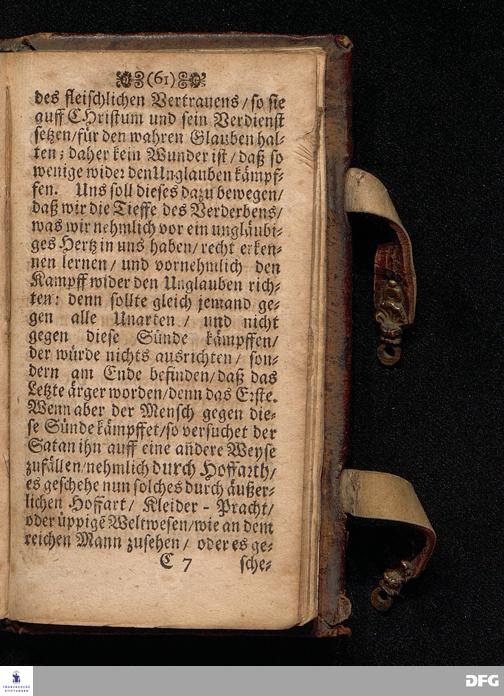 (61)
des fleischlichen Vertrauens / so sie
auff CHristum und sein Verdienst
setzen / für den wahren Glauben hal-
ten; daher kein Wunder ist / daß so
wenige wider den Unglauben kämpf-
fen. Uns soll dieses dazu bewegen /
daß wir die Tieffe des Verderbens /
was wir nehmlich vor ein ungläubi-
ges Hertz in uns haben / recht erken-
nen lernen / und vornehmlich den
Kampff wider den Unglauben rich-
ten: denn sollte gleich jemand ge-
gen alle Unarten / und nicht
gegen diese Sünde kämpffen /
der würde nichts ausrichten / son-
dern am Ende befinden / daß das
Letzte ärger worden / denn das Erste.
Wenn aber der Mensch gegen die-
se Sünde kämpffet / so versuchet der
Satan ihn auff eine andere Weyse
zufällen / nehmlich durch Hoffarth /
es geschehe nun solches durch äußer-
lichen Hoffart / Kleider - Pracht /
oder üppigē Weltwesen / wie an dem
reichen Mann zusehen / oder es ge-
C 7 sche-
FRANCKESCHE
STIFTUNGEN
DFG